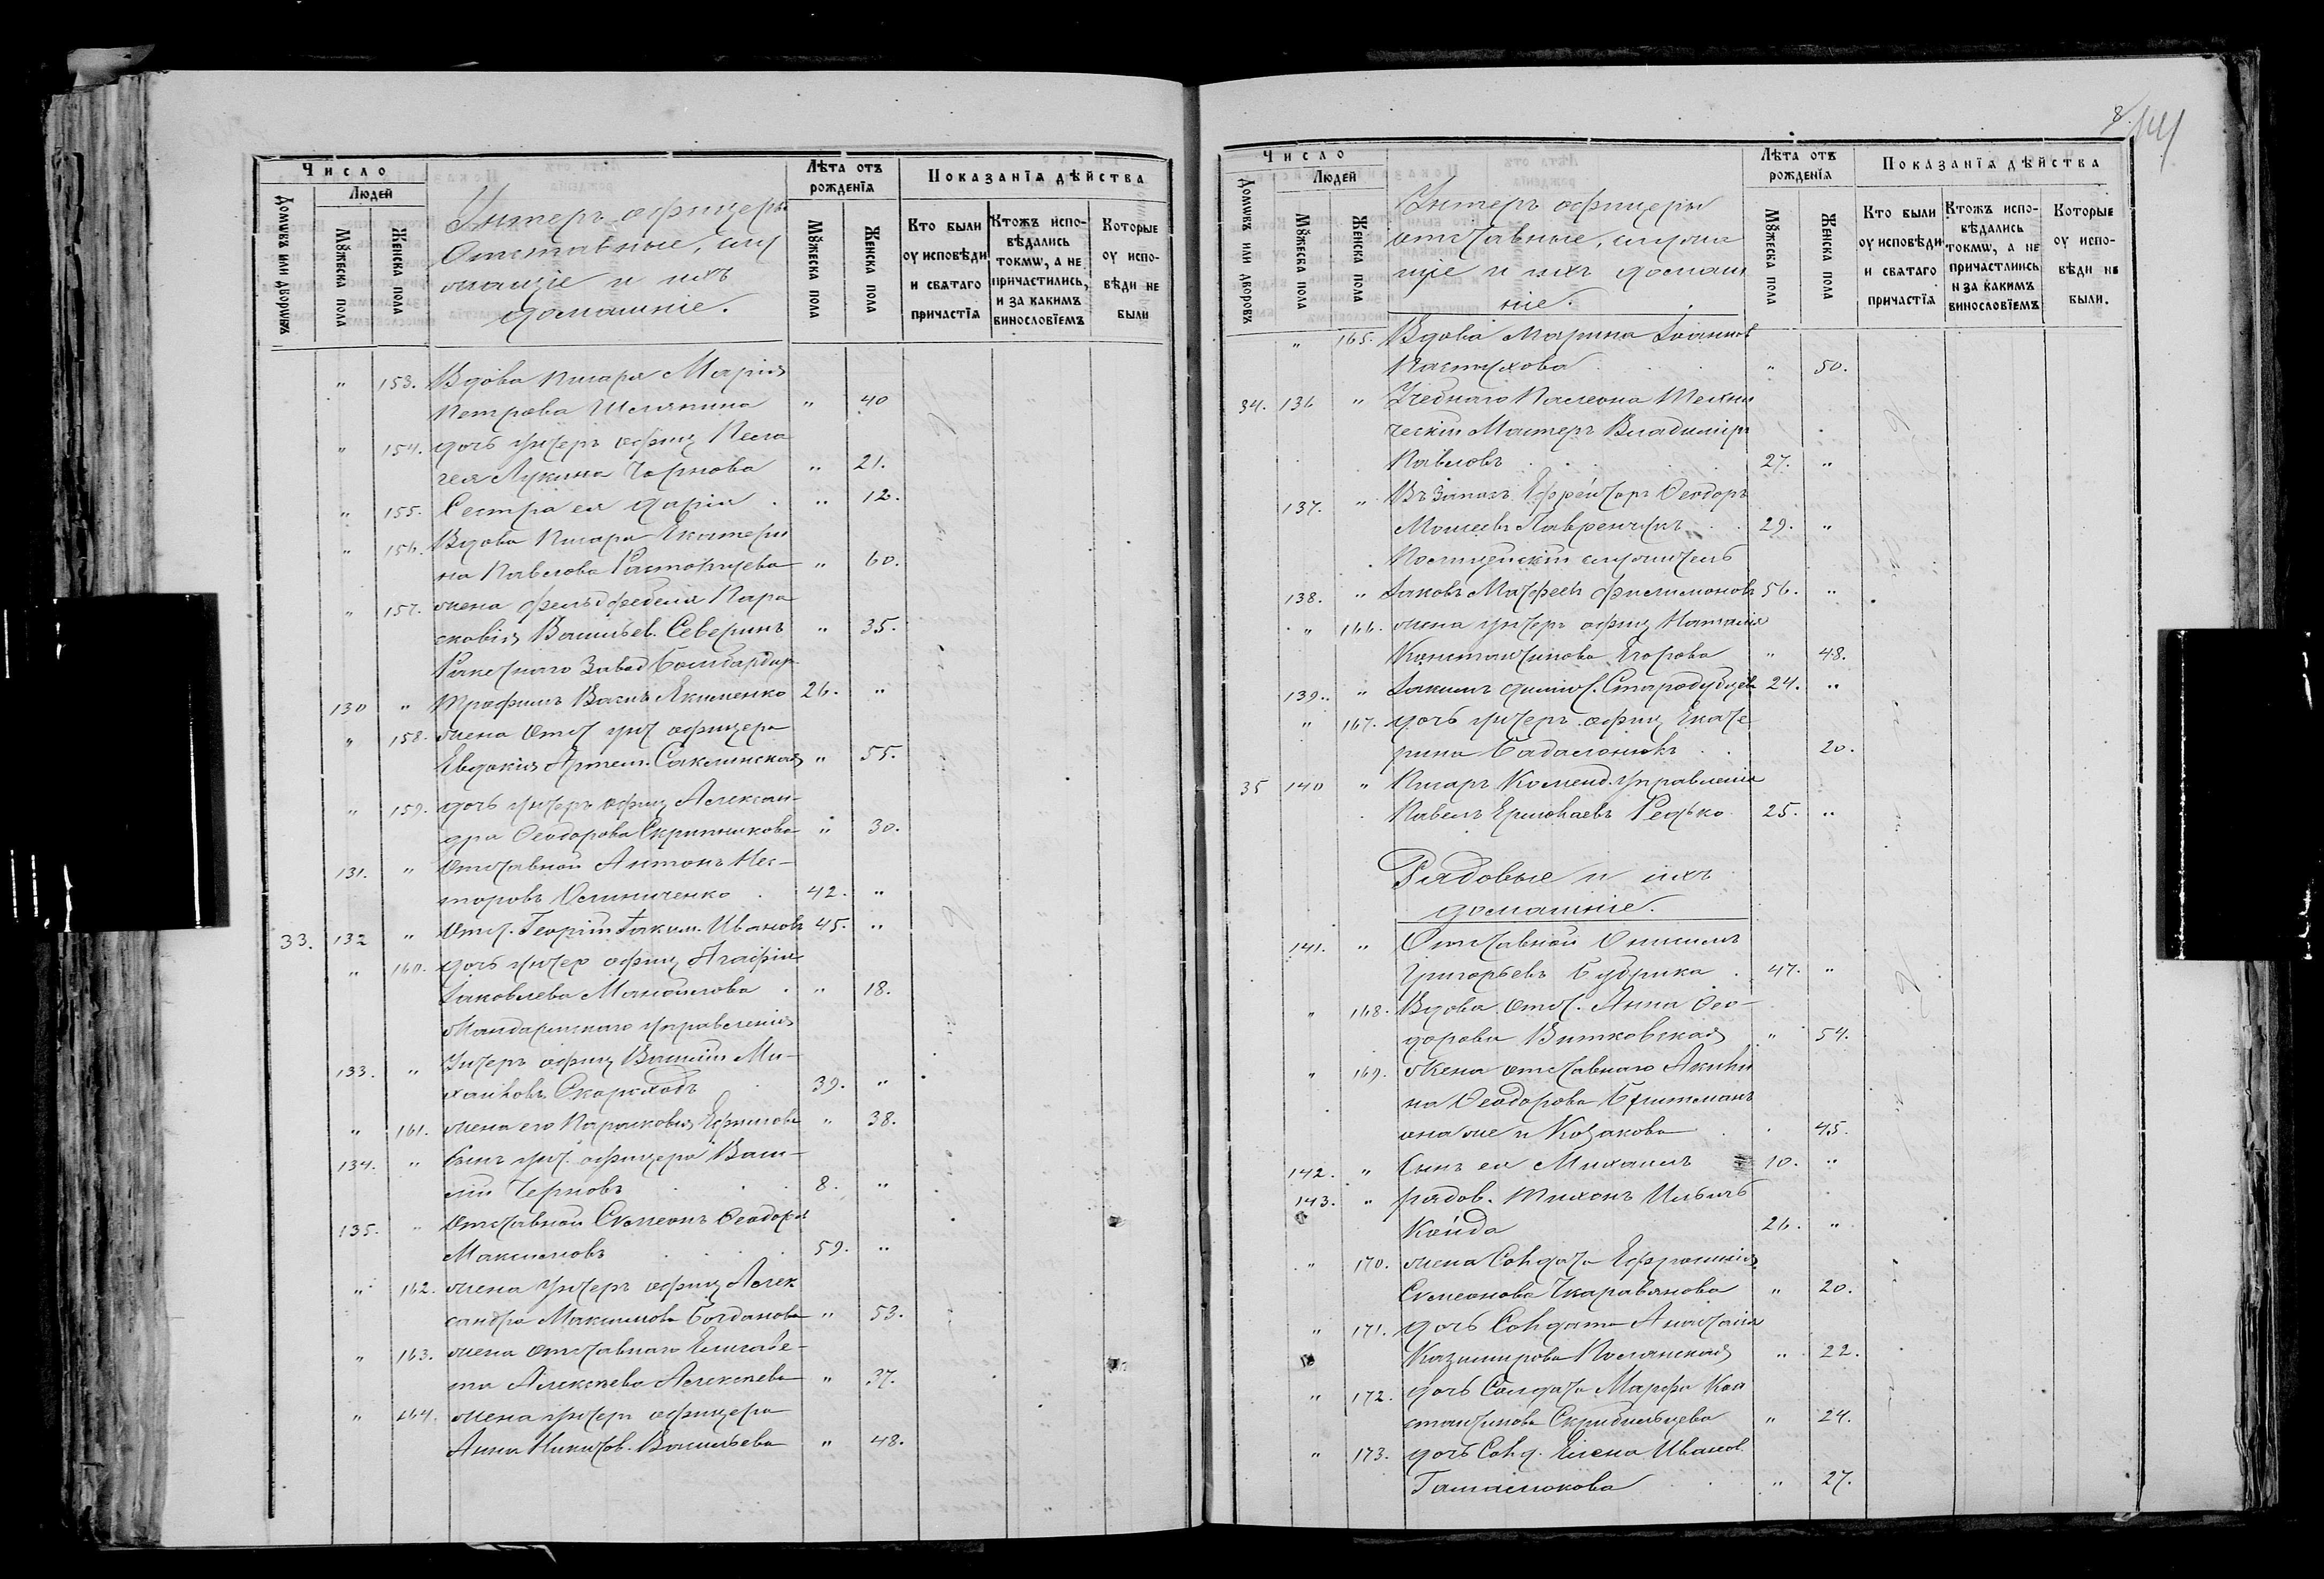 Число
Людей
Домѡвъ или дворѡвъ
Мꙋжеска пола
Женска пола
Унтеръ-офицеры
Отставные, слу
жащіе и ихъ
домашніе.
Лѣта отъ рожденїѧ
Мꙋжеска пола
Женска пола
Показанїѧ дѣйства
Кто были оу исповѣди и свѧтаго причастїѧ
Ктожъ испо-вѣдались токмѡ, а не причастились, и за какимъ винословїемъ
Которые оу испо-вѣди не были
" 153. Вдова писаря Марія
Петрова Шелякина " 40
" 154. дочь унтеръ офиц Пела
гея Лукина Чорнова " 21.
" 155. Сестра ея Дарія " 12.
" 156. Вдова Писаря Екатери
на Павлова " 60.
" 157. жена фельдфебеля Пара
сковія Васильев. Северинъ " 35.
Ракетнаго Завод Бомбардир
130 " Трофимъ Васил Якименко 26. "
" 158. жена Отст унт офицера
Евдокія Артем. Саклинская " 55.
" 159. дочь унтеръ офиц Алексан-
дра Феодорова Скрипникова " 30.
131. " Отставной Антонъ Нес-
торовъ Осиниченко 42. "
33. 132 " Отст. Георгій Іаким. Ивановъ 45. "
" 160. дочь унтер офиц Агафія
Іаковлева Манойлова " 18.
Жандармскаго управленія
133. " Унтеръ офиц Василій Ми-
хайловъ Скороходъ 39. "
" 161. жена его Парасковія Ефимова " 38.
134. " сынъ унт. офицера Васи-
лій Черновъ 8. "
135. " Отставной Симеонъ Феодоръ
Максимовъ 59. "
" 162. жена унтеръ офиц Алек
сандра Максимова Богданова " 53.
" 163. жена отставнаго Елисаве-
та Алексѣева Алексѣева " 37.
" 164. жена унтеръ офицера
Анна Никитов. Васильева " 48.
8.
Число
Людей
Домѡвъ или дворовъ
Мꙋжеска пола
Женска пола
Унтеръ офицеры
отставные, служа
щіе и ихъ домаш
ніе.
Лѣта отъ рожденїѧ
Мꙋжеска пола
Женска пола
Показанїѧ дѣйства
Кто были оу исповѣди и свѧтаго причастїѧ
Ктожъ испо-вѣдались токмѡ, а не причастлись и за какимъ винословїемъ
Которые оу испо-вѣди не были.
" 165. Вдова Марина Іоаннов
Пастухова " 50.
34. 136 " Учебнаго Полигона Техни
ческій Мастеръ Владиміръ
Павловъ 27. "
137. " Въ Запасъ Ефрейторъ Феодоръ
Моисеевъ Лавренчукъ 29. "
Полицейскій служитель
138. " Іаковъ Матфеевъ Филимоновъ 56. "
" 166. жена унтеръ офиц Наталія
Константинова Егорова " 48.
139. " Іакимъ Димит. Стародубцевъ 24. "
" 167. дочь унтеръ офиц Екате
рина 20.
35 140 " Писарь Коменд. управленія
Павелъ Ермолаевъ Редько 25. "
Рядовые и ихъ
домашніе.
141. " Отставной Онисимъ
Григорьевъ Бубрика 47. "
" 168. Вдова отст. Анна Фео-
дорова Витковская " 54.
" 169. Жена отставнаго Акили
на Феодорова
она же и Козакова 45.
142. " Сынъ ея Михаилъ 10. "
143. " рядов. Тихонъ Ильичъ
Кайда 26. "
" 170. жена Солдата Ефросинія
Симеонова Чкаравянова " 20.
" 171. дочь Солдата Анатолія
Казимирова Полянская " 22.
" 172. дочь Солдата Марфа Кон
стантинова Скрибильцева " 24.
" 173. дочь Солд. Елена Иванов.
" 27.